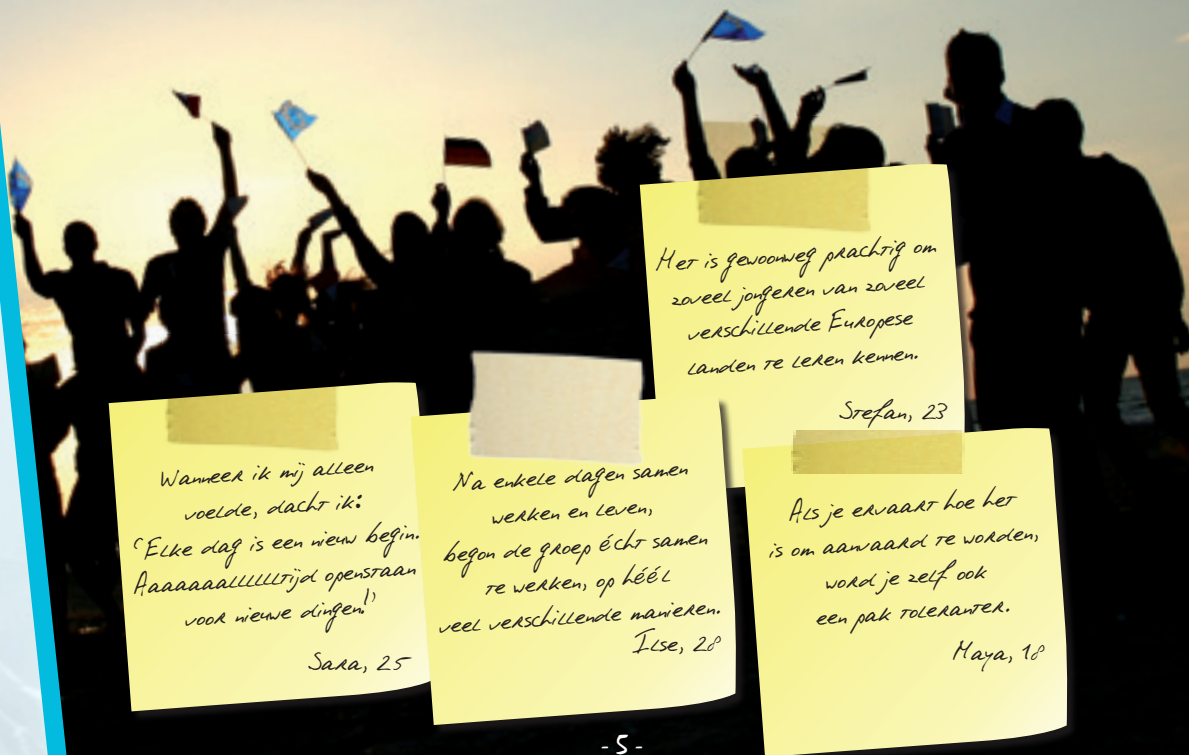 Het is gewoonweg prachtig om
zoveel jongeren van zoveel
verschillende Europese
landen te leren kennen.
Stefan, 23
Wanneer ik mij alleen
voelde, dacht ik:
‘Elke dag is een nieuw begin.
Aaaaaaallllllltijd openstaan
voor nieuwe dingen!’
Sara, 25
Na enkele dagen samen
werken en leven,
begon de groep écht samen
te werken, op héél
veel verschillende manieren.
Ilse, 28
Als je ervaart hoe het
is om aanvaard te worden,
word je zelf ook
een pak toleranter.
Maya, 18
- 5 -